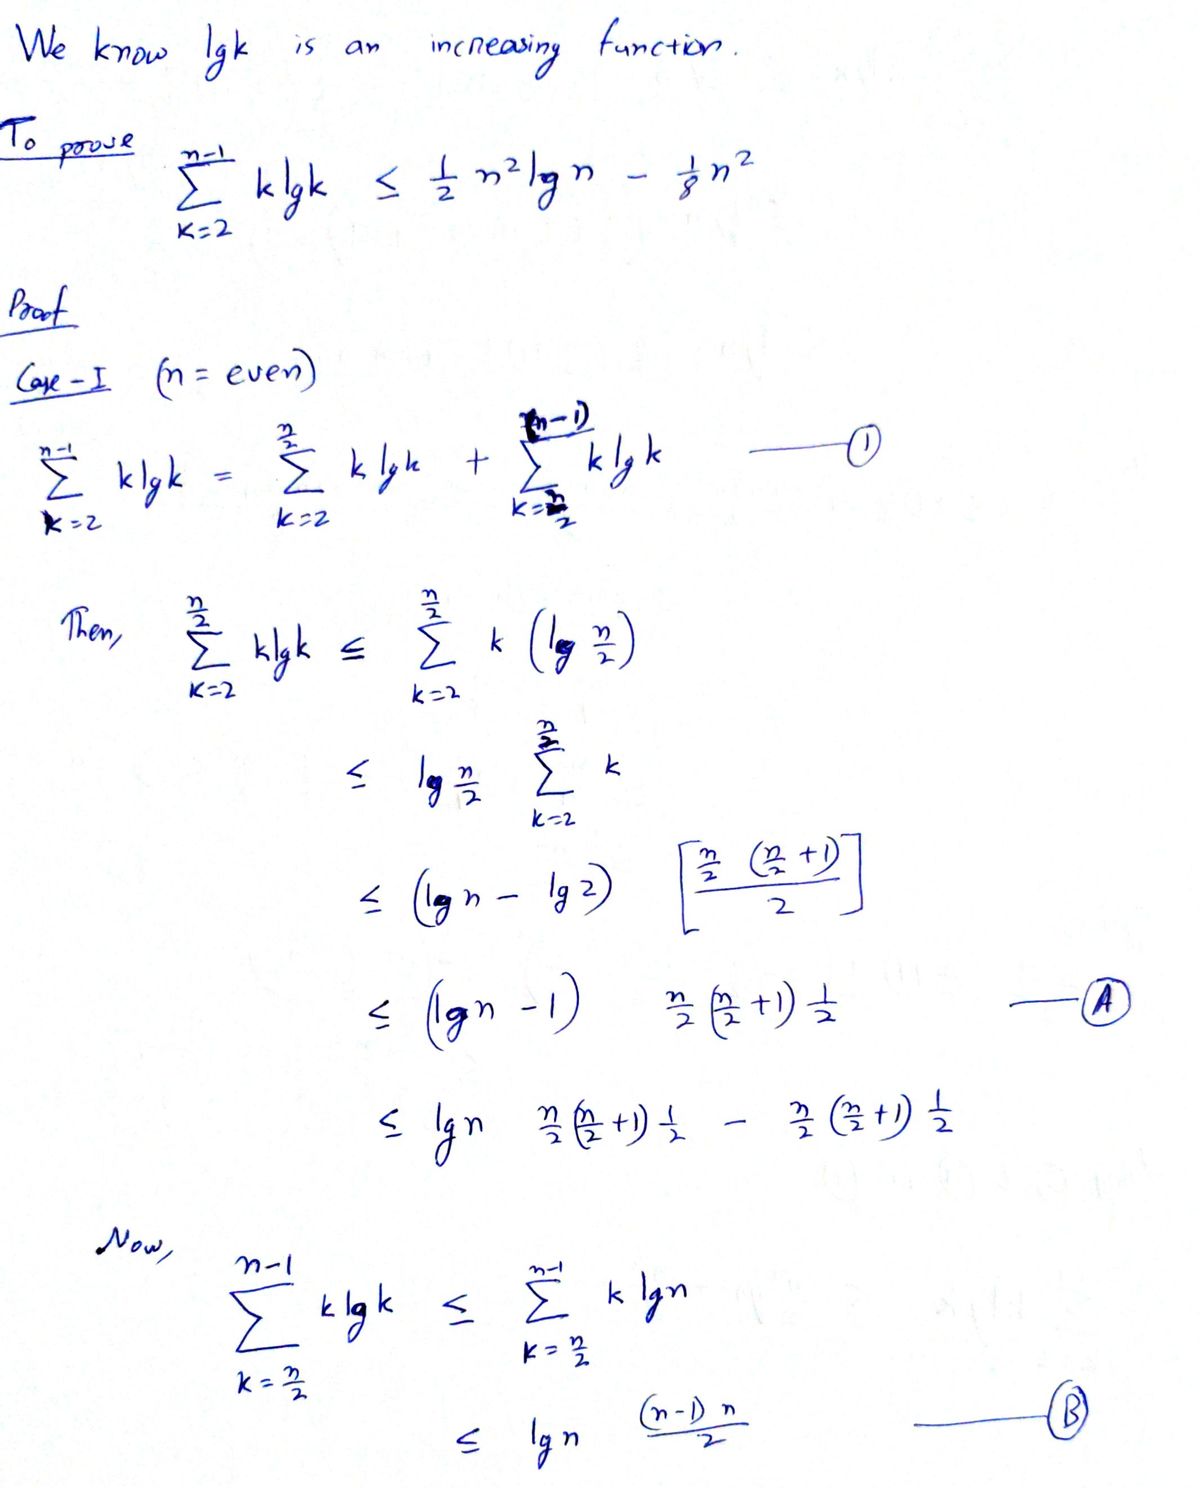 We know lgk is an increasing function.
To prove
∑_{k=2}^{n-1} k lgk ≤ 1/2 n² lg n - 1/8 n²
Proof
Case-I (n = even)
∑_{k=2}^{n-1} k lgk = ∑_{k=2}^{n/2} k lgk + ∑_{k=n/2}^{(n-1)} k lgk —— ①
Then, ∑_{k=2}^{n/2} k lgk ≤ ∑_{k=2}^{n/2} k (lg n/2)
≤ lg n/2 ∑_{k=2}^{n/2} k
≤ (lg n - lg 2) [n/2 (n/2 + 1) / 2]
≤ (lg n - 1) n/2 (n/2 + 1) 1/2 —— Ⓐ
≤ lg n n/2 (n/2 + 1) 1/2 - n/2 (n/2 + 1) 1/2
Now,
∑_{k=n/2}^{n-1} k lg k ≤ ∑_{k=n/2}^{n-1} k lgn
≤ lg n (n-1) n / 2 —— Ⓑ